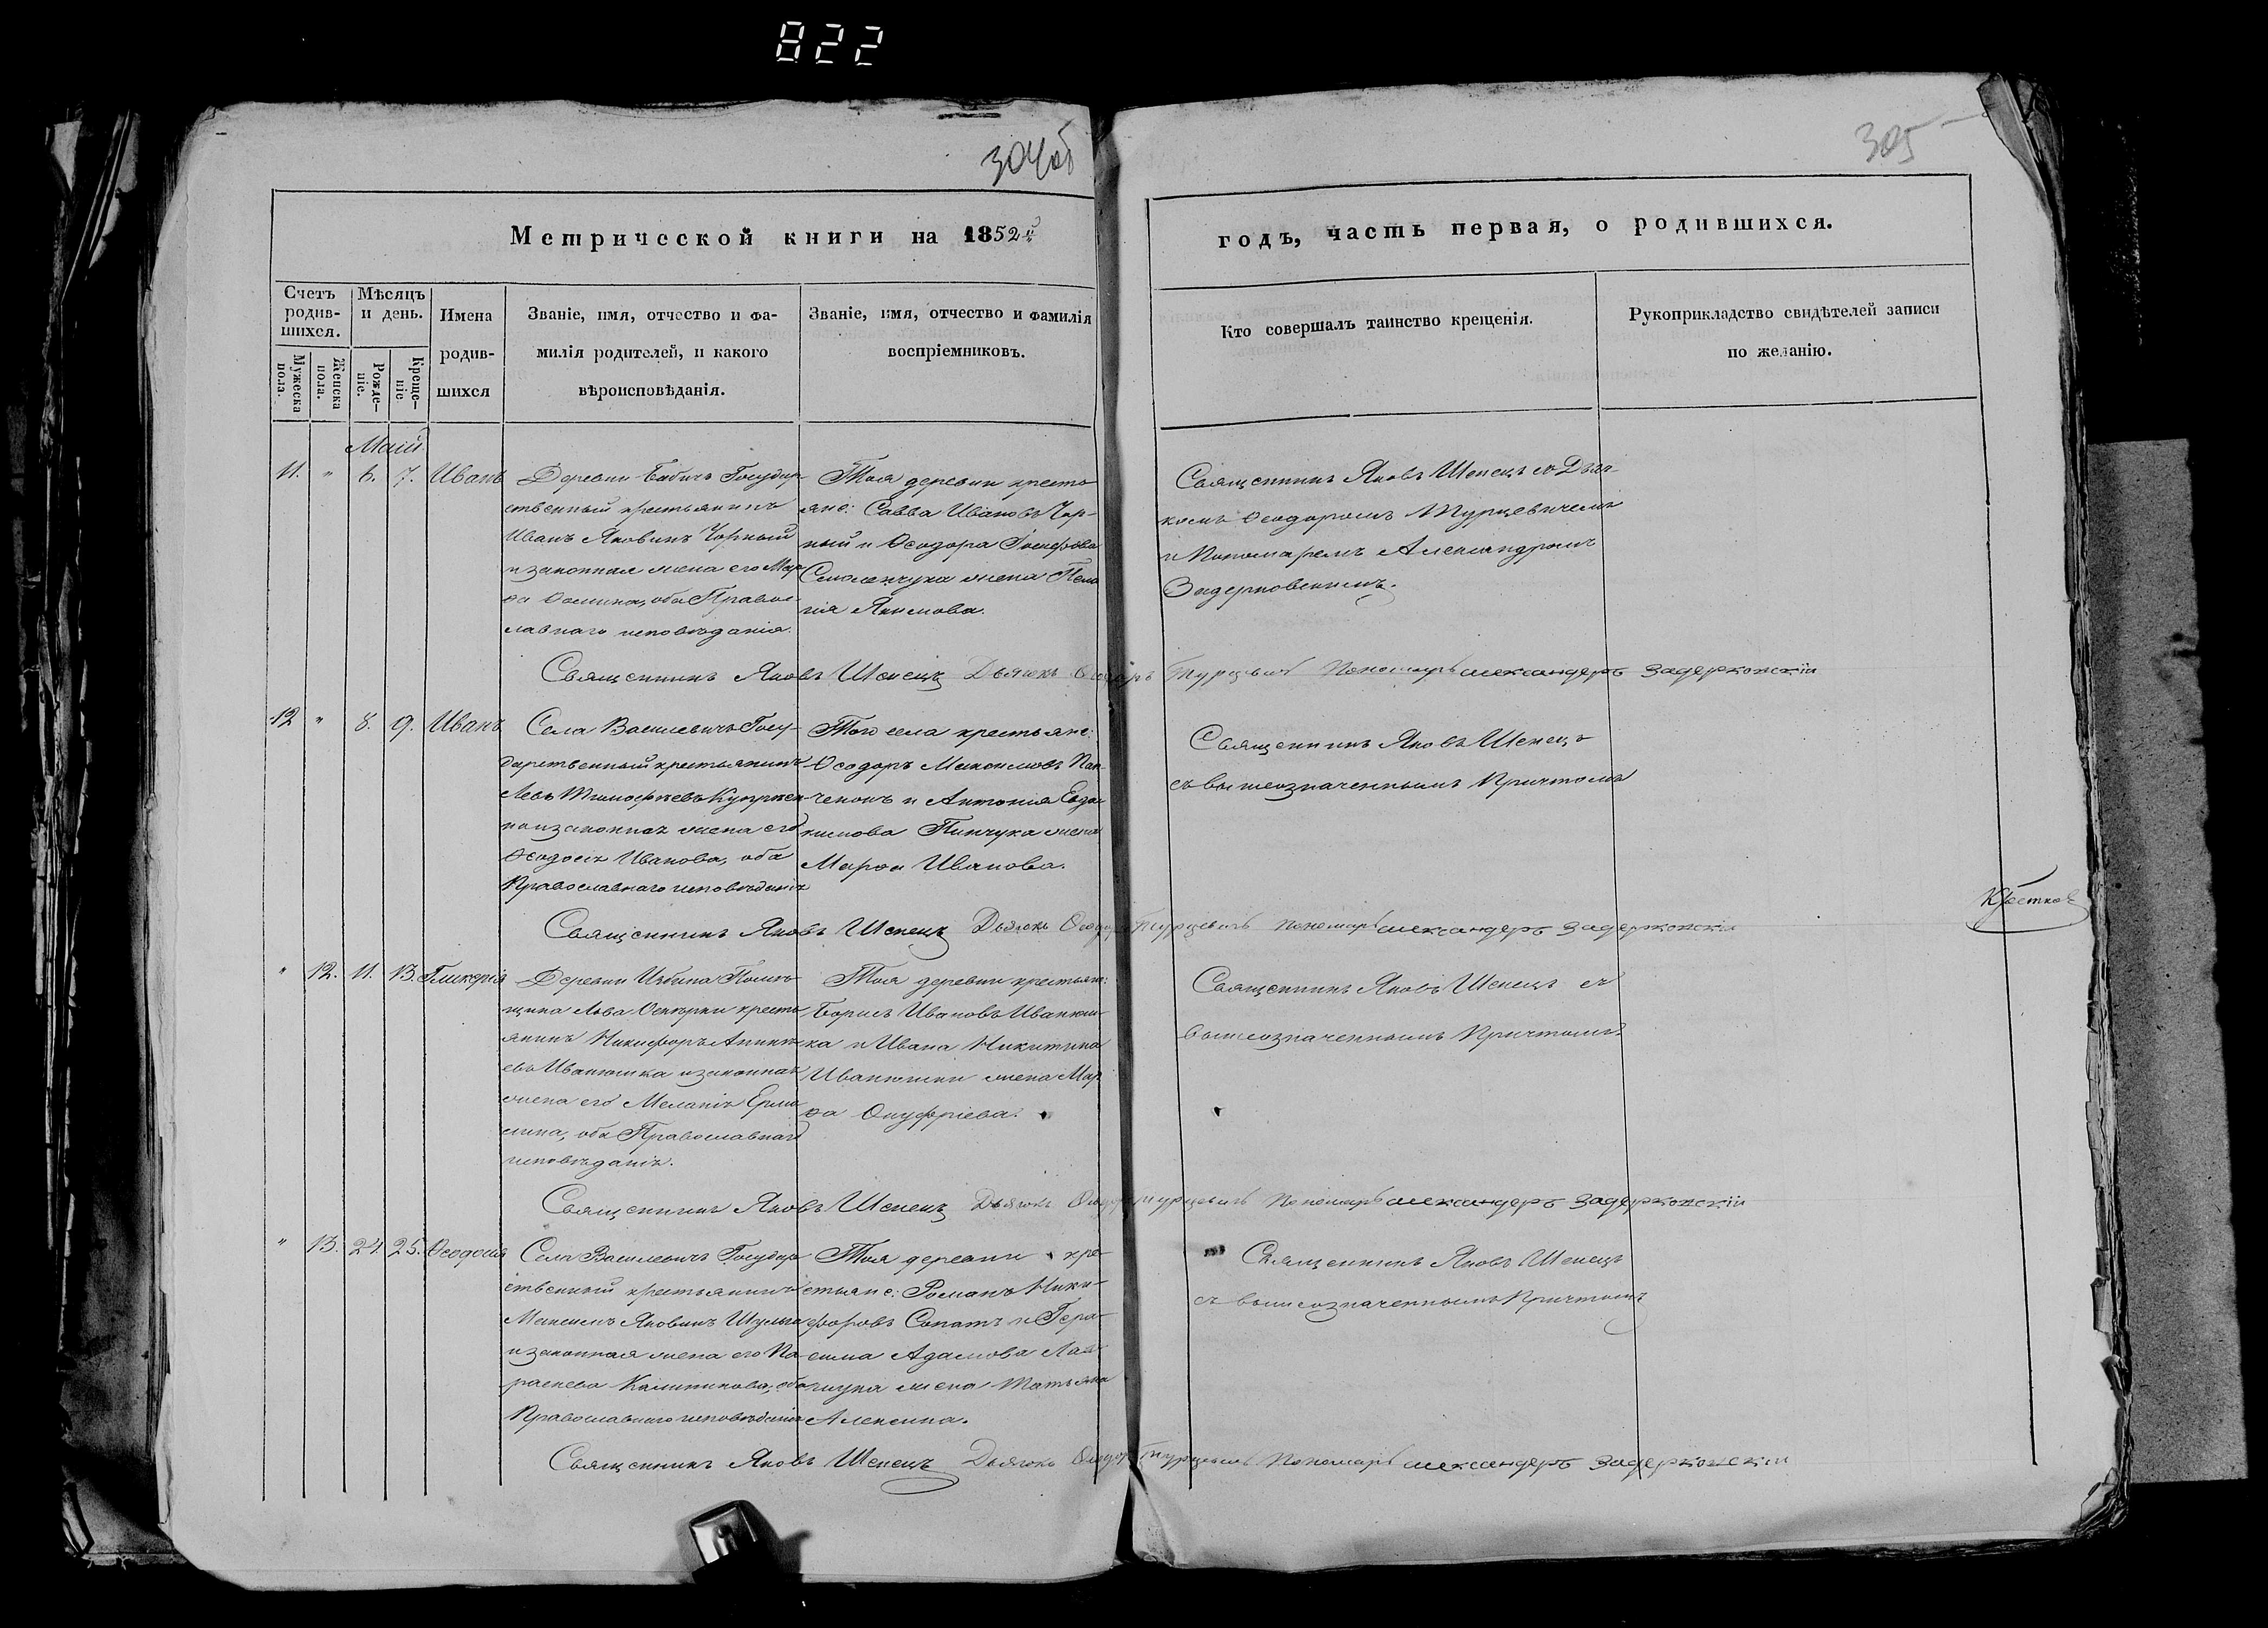 822
304об
305
Метрической книги на 1852й
годъ, часть первая, о родившихся.
Счетъ родив-
шихся.
Мужеска пола.
Женска пола.
Мѣсяцъ
и день.
Рожде-
ніе.
Креще-
ніе
Имена
родив-
шихся
Званіе, имя, отчество и фа-
милія родителей, и какого
вѣроисповѣданія.
Званіе, имя, отчество и фамилія
воспріемниковъ.
Кто совершалъ таинство крещенія.
Рукоприкладство свидѣтелей записи
по желанію.
Маій
11. " 6. 7. Иванъ
Деревни Бабичъ Государ-
ственный крестьянинъ
Иванъ Яковинъ Чорный
и законная жена его Мар
ѳа Ѳомина, оба Правос-
лавнаго исповѣданія.
Тоя деревни кресть
яне: Савва Ивановъ Чор-
ный и Ѳеодора Іосифова
Семоленчука жена Пела
гія Якимова.
Священникъ Яковъ Шепецъ съ Дья-
комъ Ѳеодоромъ Турцевичемъ
и Пономаремъ Александромъ
Задерковскимъ.
Священникъ Яковъ Шепецъ Дьячокъ Ѳеодоръ Турцевичъ Пономарь александеръ Задерковскій
12 " 8. 9. Иванъ
Села Василевичъ Госу-
дарственный крестьянинъ
Левъ Тимофѣевъ
и законная жена его
Ѳеодосія Иванова, оба
Православнаго исповѣданія
Того села крестьяне:
Ѳеодоръ Максимовъ Пап-
ченокъ и Антонія Евдо
кимова Пинчука жена
Марѳа Иванова.
Священникъ Яковъ Шепецъ
съ вышеозначеннымъ Причтомъ
Священникъ Яковъ Шепецъ Дьячокъ Ѳеодоръ Турцевичъ Пономарь александеръ Задерковскій
" 12. 11. 13. Гликерія
Деревни Избина Помѣ-
щика Льва Оскерки кресть
янинъ Никифоръ Аники-
евъ Иванюшка и законная
жена его Меланія Ермо
лина, оба Православнаго
исповѣданія.
Тоя деревни крестьяне:
Борисъ Ивановъ Иванюш-
ка и Ивана Никитина
Иванюшки жена Мар
ѳа Онуфріева.
Священникъ Яковъ Шепецъ съ
вышеозначеннымъ Причтомъ
Священникъ Яковъ Шепецъ Дьячокъ Ѳеодоръ Турцевичъ Пономарь александеръ Задерковскій
" 13. 24. 25. Ѳеодосія
Села Василевичъ Государ
ственный крестьянинъ
Максимъ Яковинъ Шульга
и законная жена его Па
раскева Калиникова, оба
Православнаго исповѣданія
Тоя деревни кре-
стьяне: Романъ Ники-
форовъ Сопатъ и Гера-
сима Адамова
жена Татьяна
Алексина.
Священникъ Яковъ Шепецъ
съ вышеозначеннымъ Причтомъ
Священникъ Яковъ Шепецъ Дьячокъ Ѳеодоръ Турцевичъ Пономарь александеръ Задерковскій